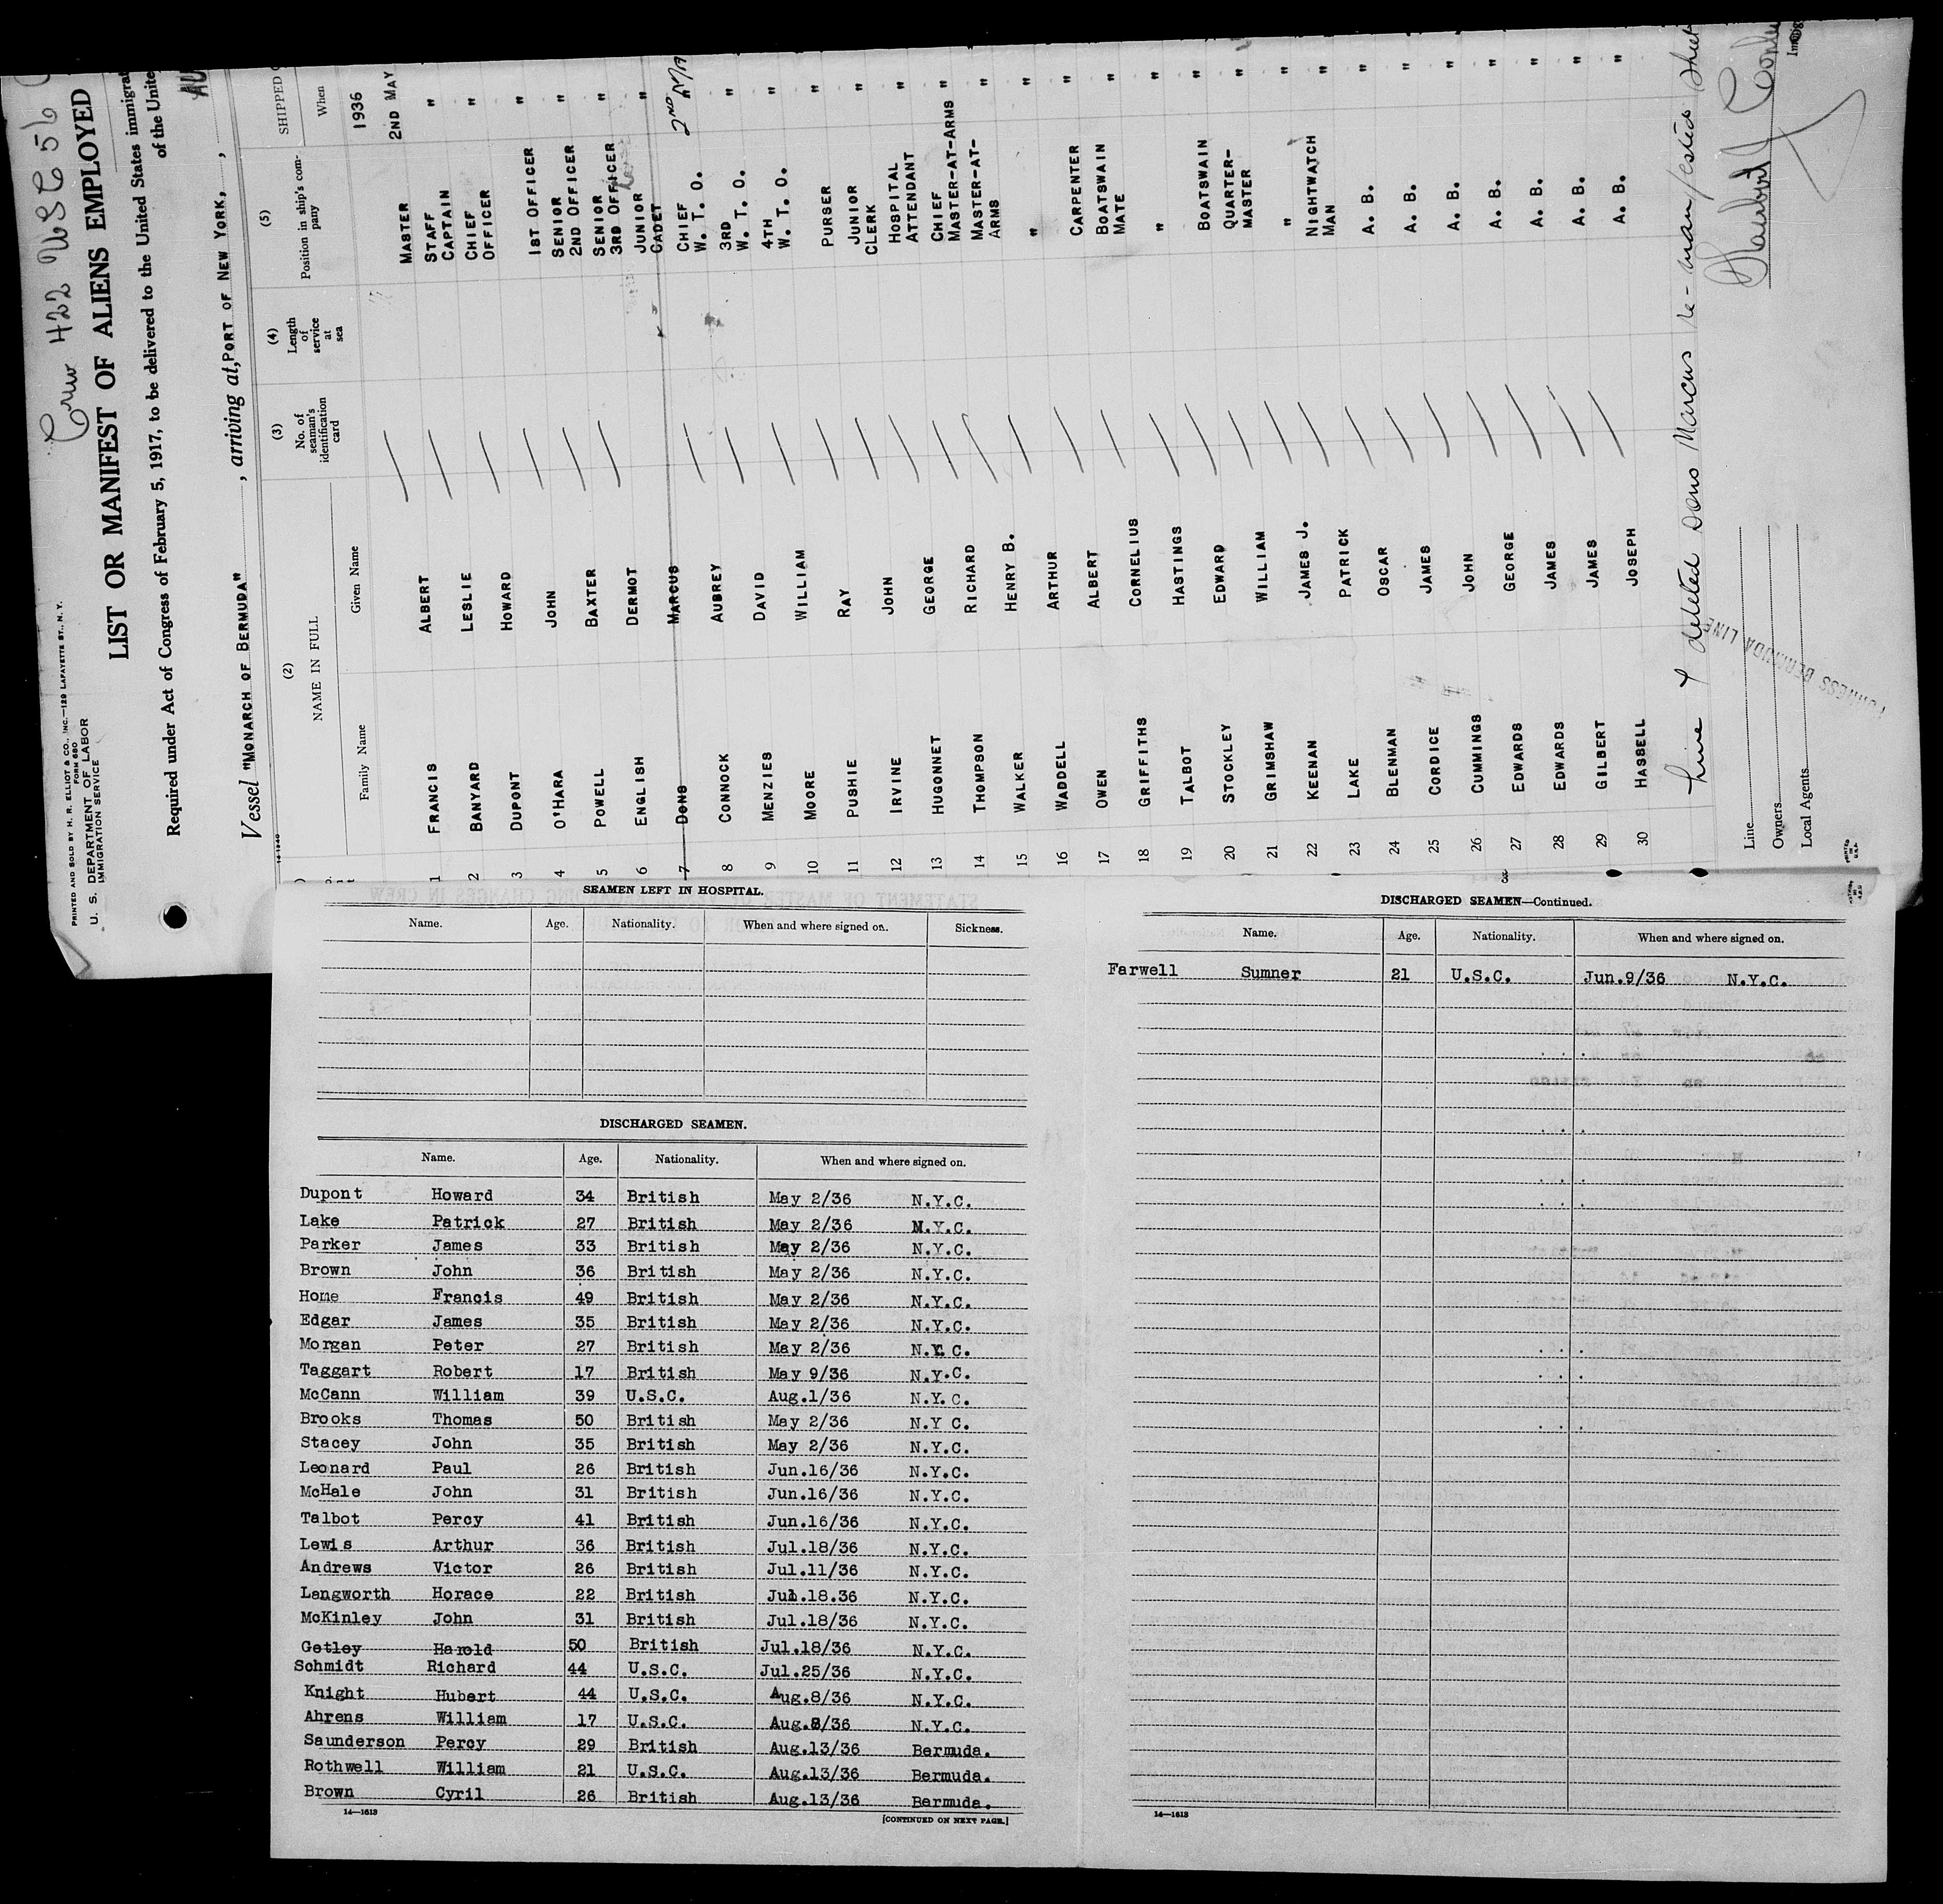 Crew 422 USC 56
PRINTED AND SOLD BY H. R. ELLIOT & CO., INC.—129 LAFAYETTE ST., N. Y.
FORM 680
U. S. DEPARTMENT OF LABOR
IMMIGRATION SERVICE
LIST OR MANIFEST OF ALIENS EMPLOYED
Required under Act of Congress of February 5, 1917, to be delivered to the United States immigrat
of the Unite
Vessel "MONARCH OF BERMUDA", arriving at, PORT OF NEW YORK, ,
14-1240
(2) (3) (4) (5) SHIPPED
NAME IN FULL No. of seaman's identification card Length of service at sea Position in ship's company When
Family Name Given Name 1936
1 FRANCIS ALBERT MASTER 2ND MAY
2 BANYARD LESLIE STAFF CAPTAIN "
3 DUPONT HOWARD CHIEF OFFICER "
4 O'HARA JOHN 1ST OFFICER "
5 POWELL BAXTER SENIOR 2ND OFFICER "
6 ENGLISH DERMOT SENIOR 3RD OFFICER "
7 DONS MARCUS JUNIOR CADET "
8 CONNOCK AUBREY CHIEF W. T. O. 2ND
9 MENZIES DAVID 3RD W. T. O. "
10 MOORE WILLIAM 4TH W. T. O. "
11 PUSHIE RAY PURSER "
12 IRVINE JOHN JUNIOR CLERK "
13 HUGONNET GEORGE HOSPITAL ATTENDANT "
14 THOMPSON RICHARD CHIEF MASTER-AT-ARMS "
15 WALKER HENRY B. MASTER-AT-ARMS "
16 WADDELL ARTHUR " "
17 OWEN ALBERT CARPENTER "
18 GRIFFITHS CORNELIUS BOATSWAIN MATE "
19 TALBOT HASTINGS " "
20 STOCKLEY EDWARD BOATSWAIN "
21 GRIMSHAW WILLIAM QUARTER-MASTER "
22 KEENAN JAMES J. " "
23 LAKE PATRICK NIGHTWATCH MAN "
24 BLENMAN OSCAR A. B. "
25 CORDICE JAMES A. B. "
26 CUMMINGS JOHN A. B. "
27 EDWARDS GEORGE A. B. "
28 EDWARDS JAMES A. B. "
29 GILBERT JAMES A. B. "
30 HASSELL JOSEPH A. B. "
Line 7 deleted Dons Marcus re-manifested Sheet
Line
Owners
Local Agents
FURNESS BERMUDA LINE
PRINTED IN U.S.A.
SEAMEN LEFT IN HOSPITAL.
Name. Age. Nationality. When and where signed on. Sickness.
DISCHARGED SEAMEN.
Name. Age. Nationality. When and where signed on.
Dupont Howard 34 British May 2/36 N.Y.C.
Lake Patrick 27 British May 2/36 N.Y.C.
Parker James 33 British May 2/36 N.Y.C.
Brown John 36 British May 2/36 N.Y.C.
Home Francis 49 British May 2/36 N.Y.C.
Edgar James 35 British May 2/36 N.Y.C.
Morgan Peter 27 British May 2/36 N.Y.C.
Taggart Robert 17 British May 9/36 N.Y.C.
McCann William 39 U.S.C. Aug.1/36 N.Y.C.
Brooks Thomas 50 British May 2/36 N.Y C.
Stacey John 35 British May 2/36 N.Y.C.
Leonard Paul 26 British Jun.16/36 N.Y.C.
McHale John 31 British Jun.16/36 N.Y.C.
Talbot Percy 41 British Jun.16/36 N.Y.C.
Lewis Arthur 36 British Jul.18/36 N.Y.C.
Andrews Victor 26 British Jul.11/36 N.Y.C.
Langworth Horace 22 British Jul.18.36 N.Y.C.
McKinley John 31 British Jul.18/36 N.Y.C.
Getley Harold 50 British Jul.18/36 N.Y.C.
Schmidt Richard 44 U.S.C. Jul.25/36 N.Y.C.
Knight Hubert 44 U.S.C. Aug.8/36 N.Y.C.
Ahrens William 17 U.S.C. Aug.8/36 N.Y.C.
Saunderson Percy 29 British Aug.13/36 Bermuda.
Rothwell William 21 U.S.C. Aug.13/36 Bermuda.
Brown Cyril 26 British Aug.13/36 Bermuda.
14—1613 [CONTINUED ON NEXT PAGE.]
DISCHARGED SEAMEN—Continued.
Name. Age. Nationality. When and where signed on.
Farwell Sumner 21 U.S.C. Jun.9/36 N.Y.C.
14—1613